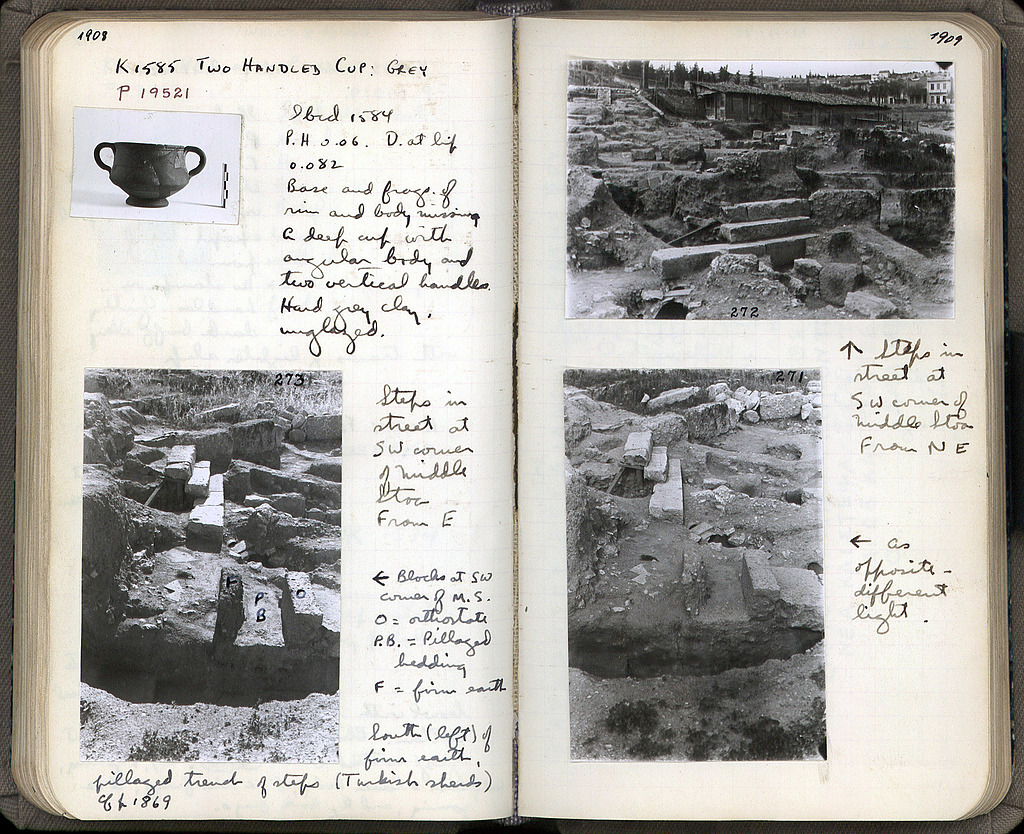 1908
K1585 TWO HANDLED CUP: GREY
P 19521
Ibid 1584
P.H. 0.06. D. at lip
0.082
Base and frags. of
rim and body missing
A deep cup with
angular body and
two vertical handles.
Hard grey clay,
unglazed.
273
Steps in
street at
SW corner
of Middle
Stoa
From E
F
P
B
O
← Blocks at SW
corner of M.S.
O = orthostate
P.B. = Pillaged
bedding
F = firm earth
South (left) of
firm earth,
pillaged trench of steps (Turkish sherds)
Cf p. 1869
1909
272
↑ Steps in
street at
SW corner of
Middle Stoa
From NE
271
← as
opposite -
different
light.